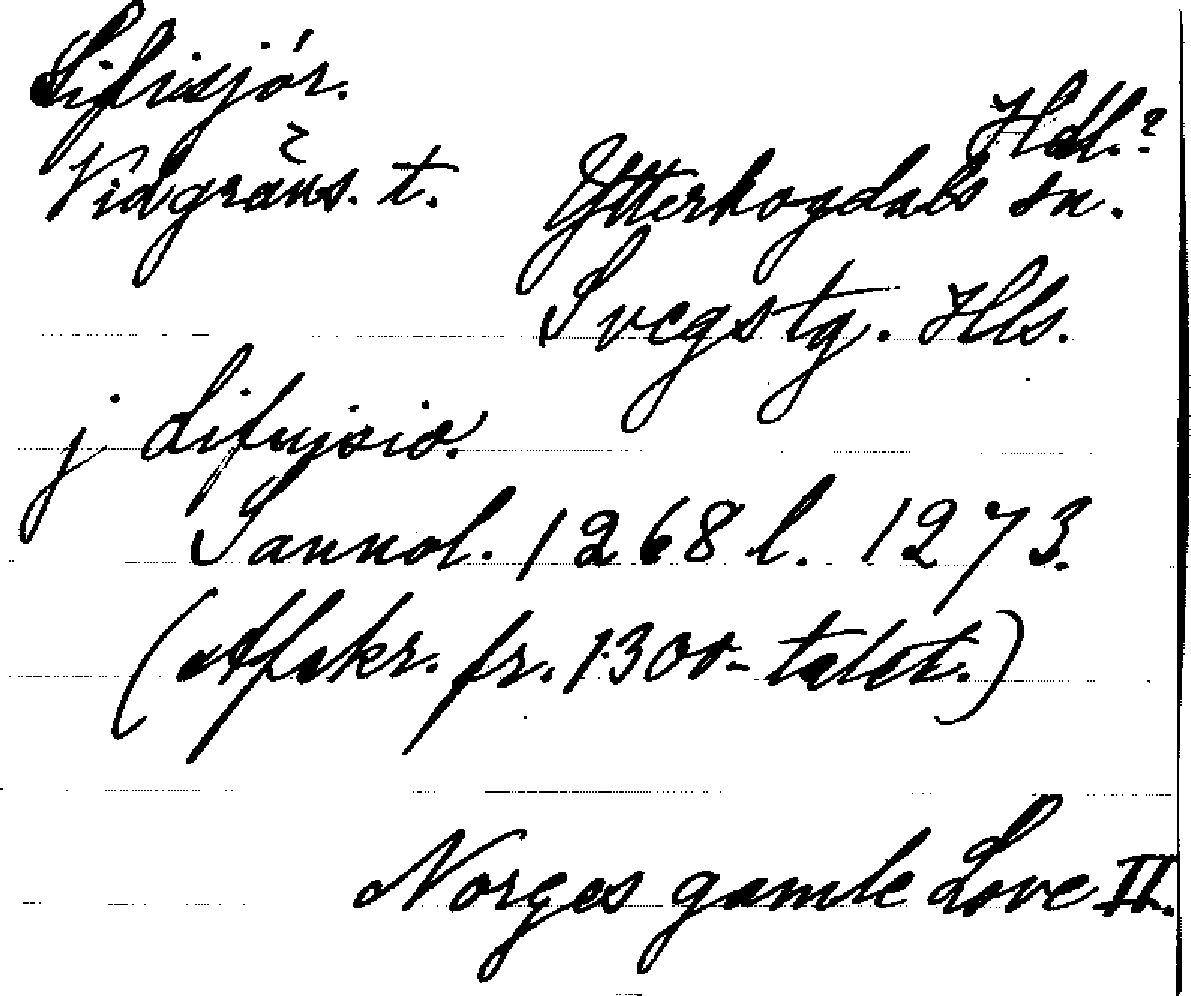 Lifrisjór.
Hdl.?
Vid gräns. t. Ytterhogdals sn.
Svegs tg. Hls.
j Lifrjsio.
Sannol. 1268 l. 1273.
(Afskr. fr. 1300-talet.)
Norges gamle Love II.